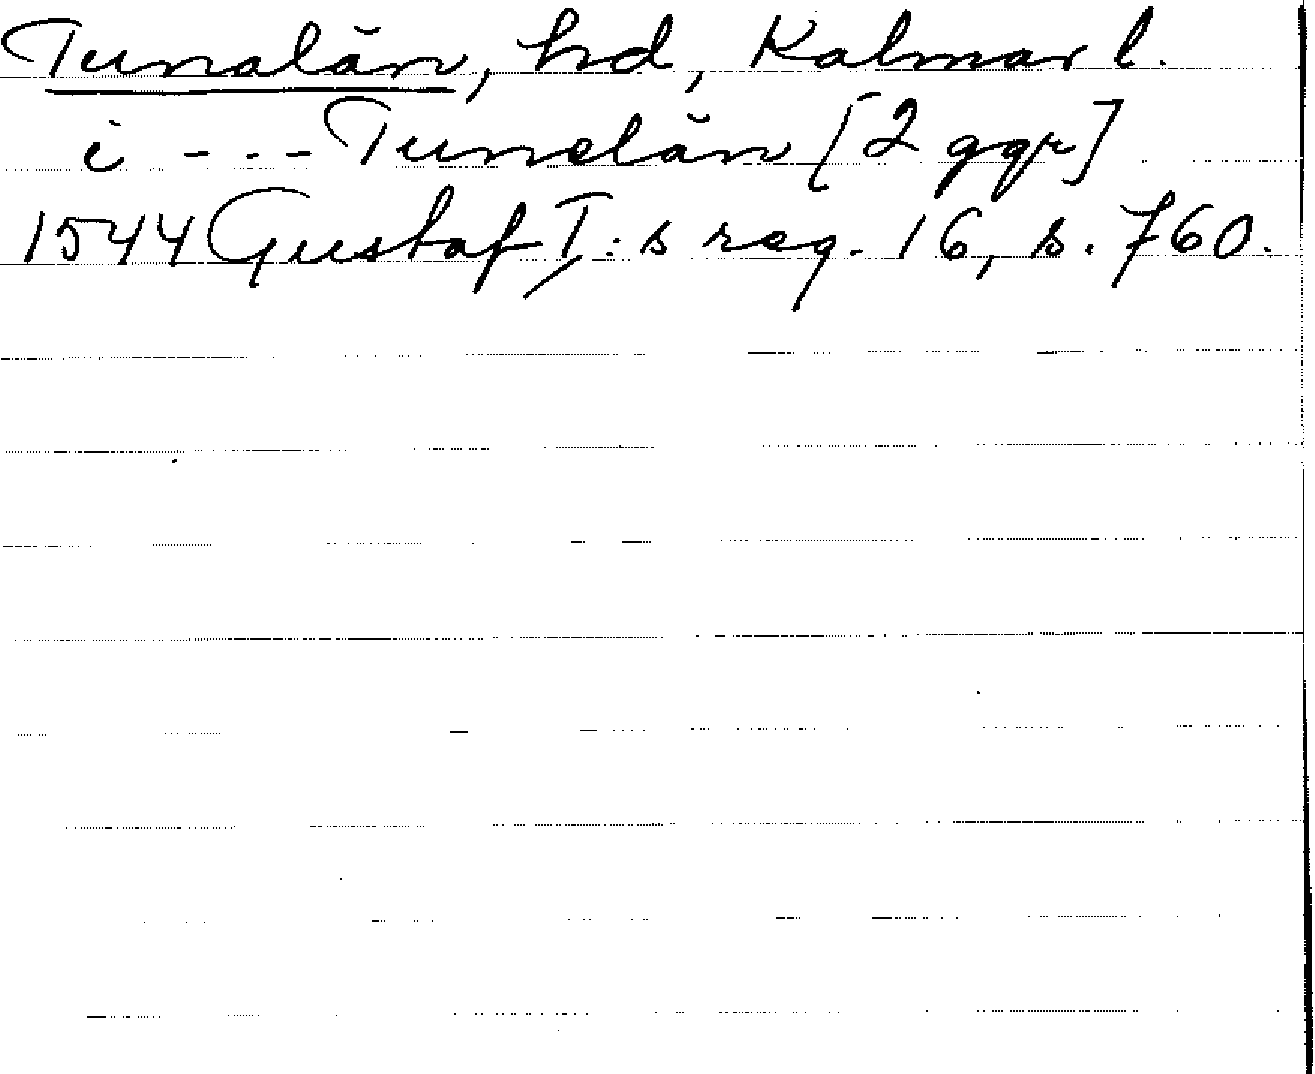 Tunalän, hd, Kalmar l.
i - - - Tunelän [2 ggr]
1544 Gustaf I:s reg. 16, s. 760.